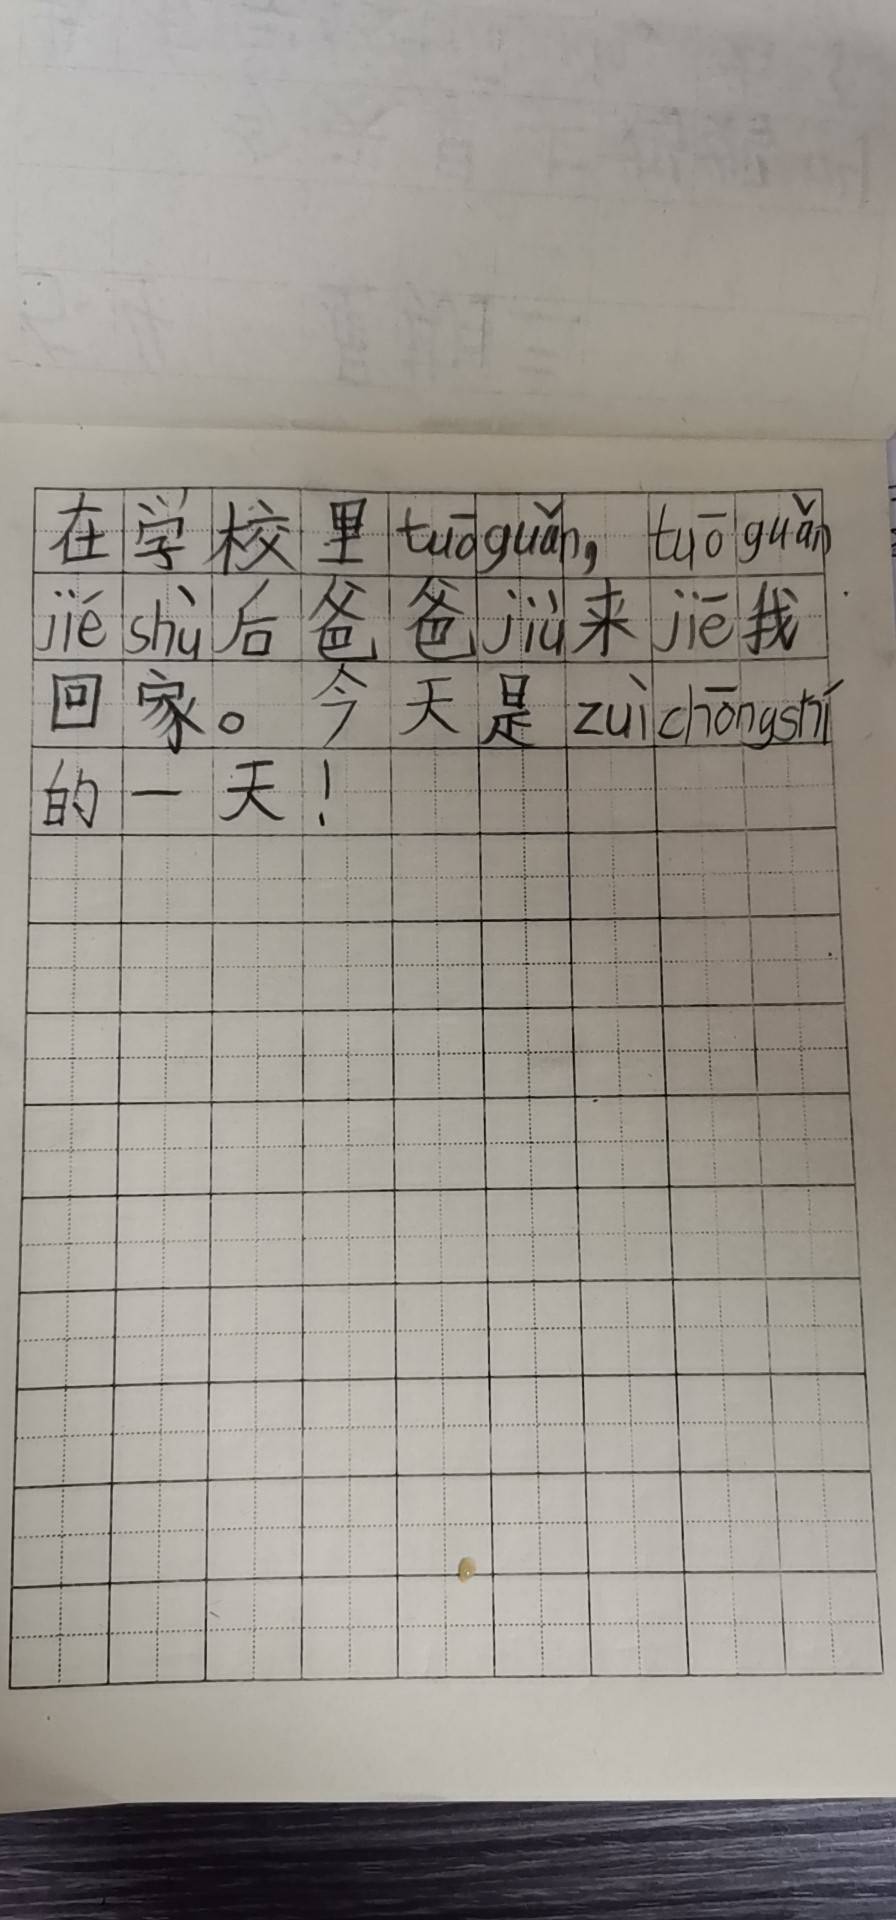 在学校里tuōguǎn，tuōguǎn
jiéshù后爸爸jiù来jiē我
回家。今天是zuìchōngshí
的一天！